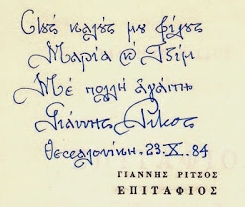 Στούς καλούς μου φίλους
Μαρία & Τζίμ
Μέ πολλή ἀγάπη
Γιάννης Ρίτσος
Θεσσαλονίκη. 23.X.84
ΓΙΑΝΝΗΣ ΡΙΤΣΟΣ
ΕΠΙΤΑΦΙΟΣ